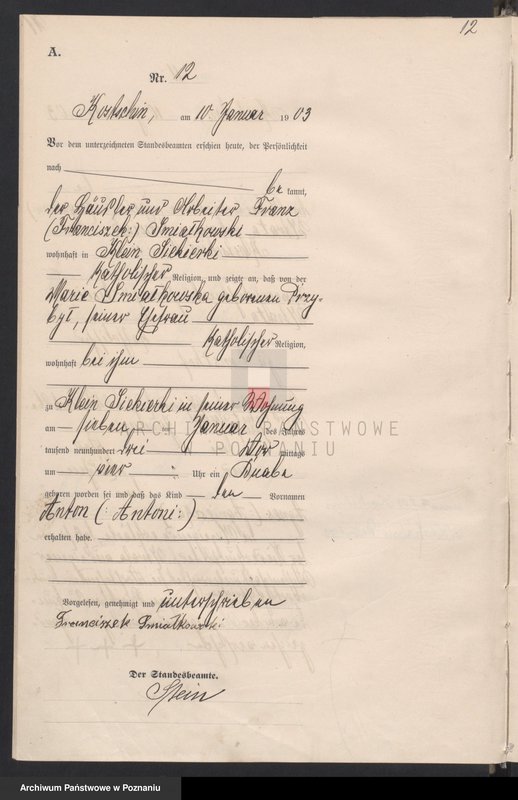 12
A.
Nr. 12
Kostschin, am 10 Januar 1903
Vor dem unterzeichneten Standesbeamten erschien heute, der Persönlichkeit
nach
be kannt,
der Häusler und Arbeiter Franz
(Franciszek:) Smiatkowski
wohnhaft in Klein Siekierki
Katholischer Religion, und zeigte an, daß von der
Marie Smiatkowska geborenen Przy-
byl, seiner Ehefrau
Katholischer Religion,
wohnhaft bei ihm
zu Klein Siekierki in seiner Wohnung
am sieben Januar des Jahres
tausend neunhundert drei Vor mittags
um vier Uhr ein Knabe
geboren worden sei und daß das Kind den Vornamen
Anton (: Antoni:)
erhalten habe.
Vorgelesen, genehmigt und unterschrieben
Franciszek Smiatkowski
Der Standesbeamte.
Stein
ARCHIWUM PAŃSTWOWE
POZNANIU
Archiwum Państwowe w Poznaniu